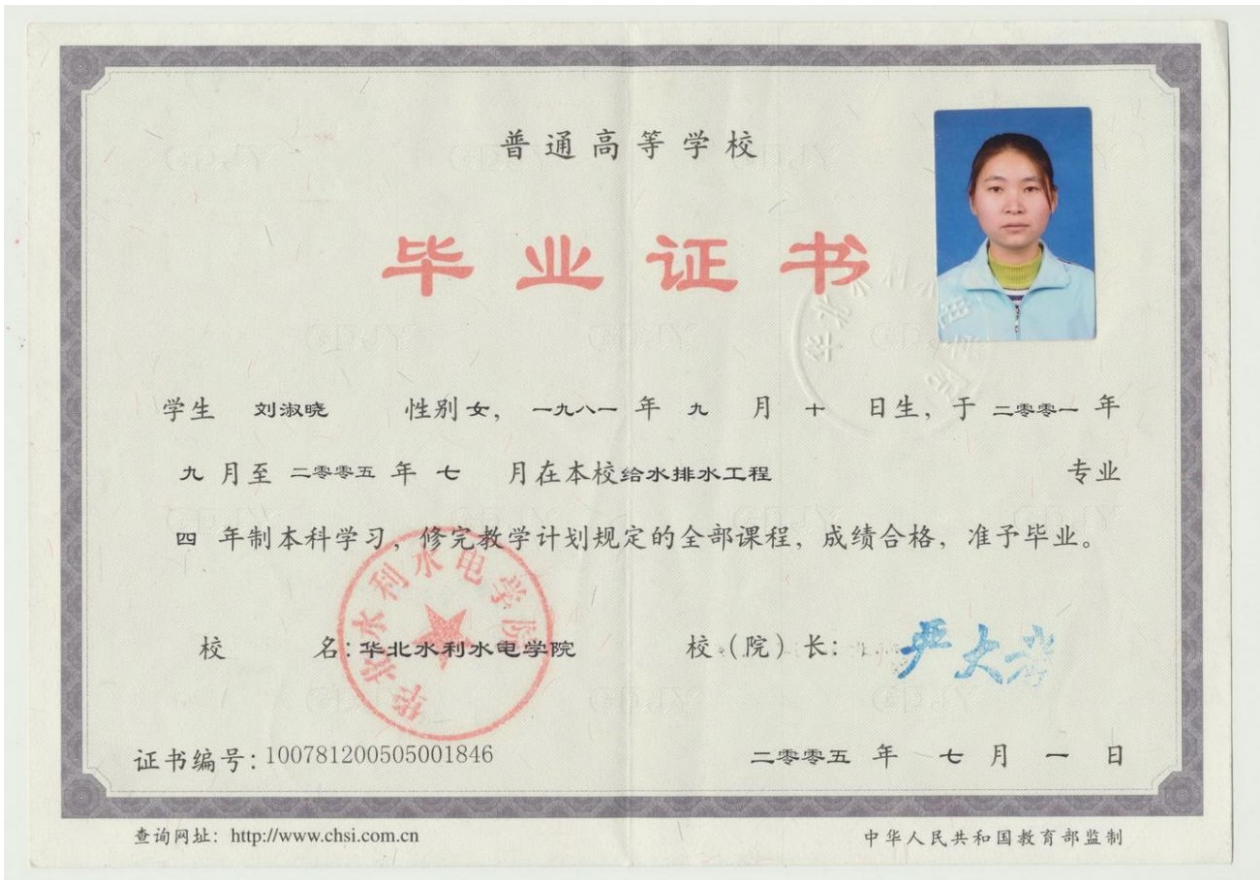 普通高等学校
毕业证书
学生 刘淑晓 性别 女, 一九八一 年 九 月 十 日生, 于 二零零一 年
九 月至 二零零五 年 七 月在本校 给水排水工程 专业
四 年制本科学习, 修完教学计划规定的全部课程, 成绩合格, 准予毕业。
华北水利水电学院
校 名: 华北水利水电学院 校(院)长:
证书编号: 100781200505001846 二零零五 年 七 月 一 日
查询网址: http://www.chsi.com.cn 中华人民共和国教育部监制